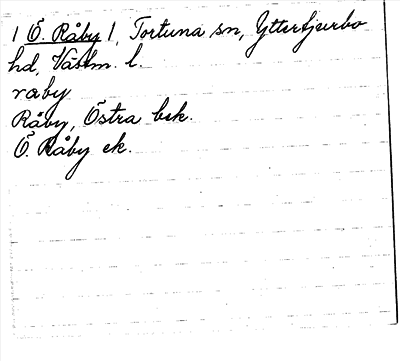 | Ö. Råby |, Tortuna sn, Yttertjurbo
hd, Västm. l.
råby
Råby, Östra bsk.
Ö. Råby ek.